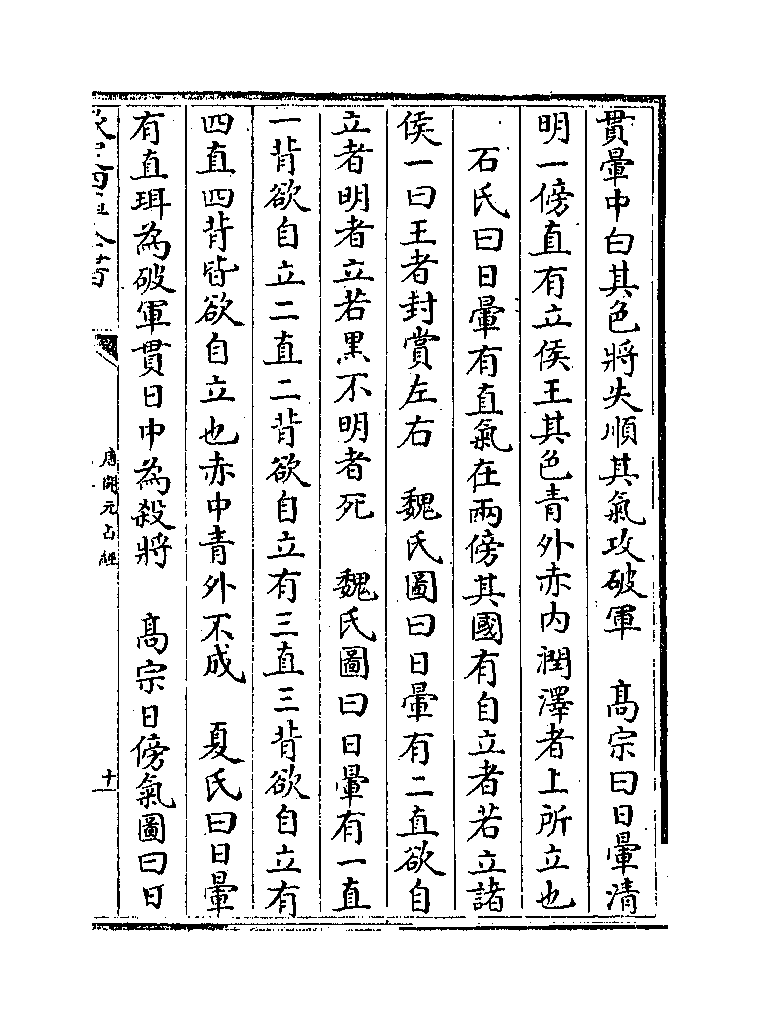 貫暈中白其色將失順其氣攻破軍　高宗曰日暈清
明一傍直有立侯王其色青外赤内潤澤者上所立也
石氏曰日暈有直氣在兩傍其國有自立者若立諸
侯一曰王者封賞左右　魏氏圖曰日暈有二直欲自
立者明者立若黒不明者死　魏氏圖曰日暈有一直
一背欲自立二直二背欲自立有三直三背欲自立有
四直四背皆欲自立也赤中青外不成　夏氏曰日暈
有直珥為破軍貫日中為殺將　髙宗日傍氣圖曰日
唐開元占經
十一